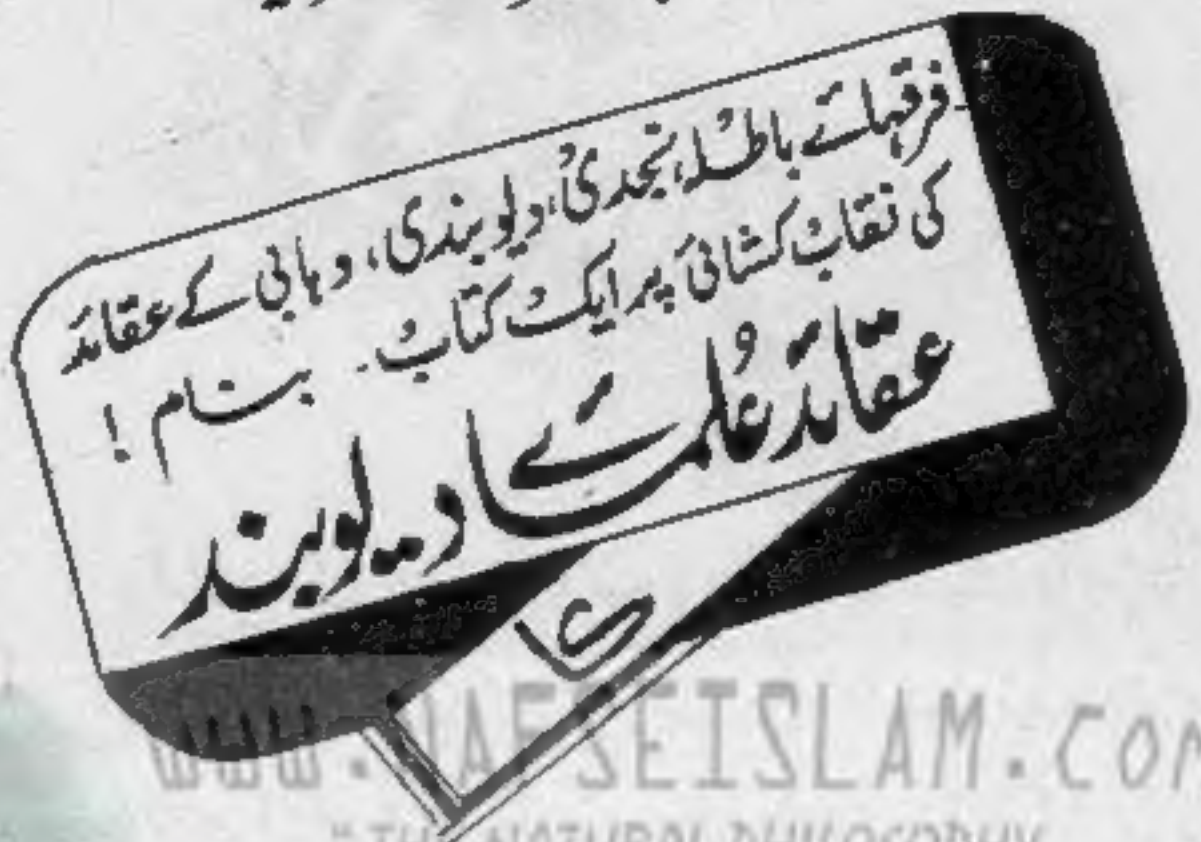 فرقہائے باطلہ، نجدی، دیوبندی، وہابی کے عقائد
کی نقاب کشائی پر ایک کتاب۔ بنام !
عقائد علمائے دیوبند
WWW.NAFSEISLAM.COM
"THE NATURAL PHILOSOPHY